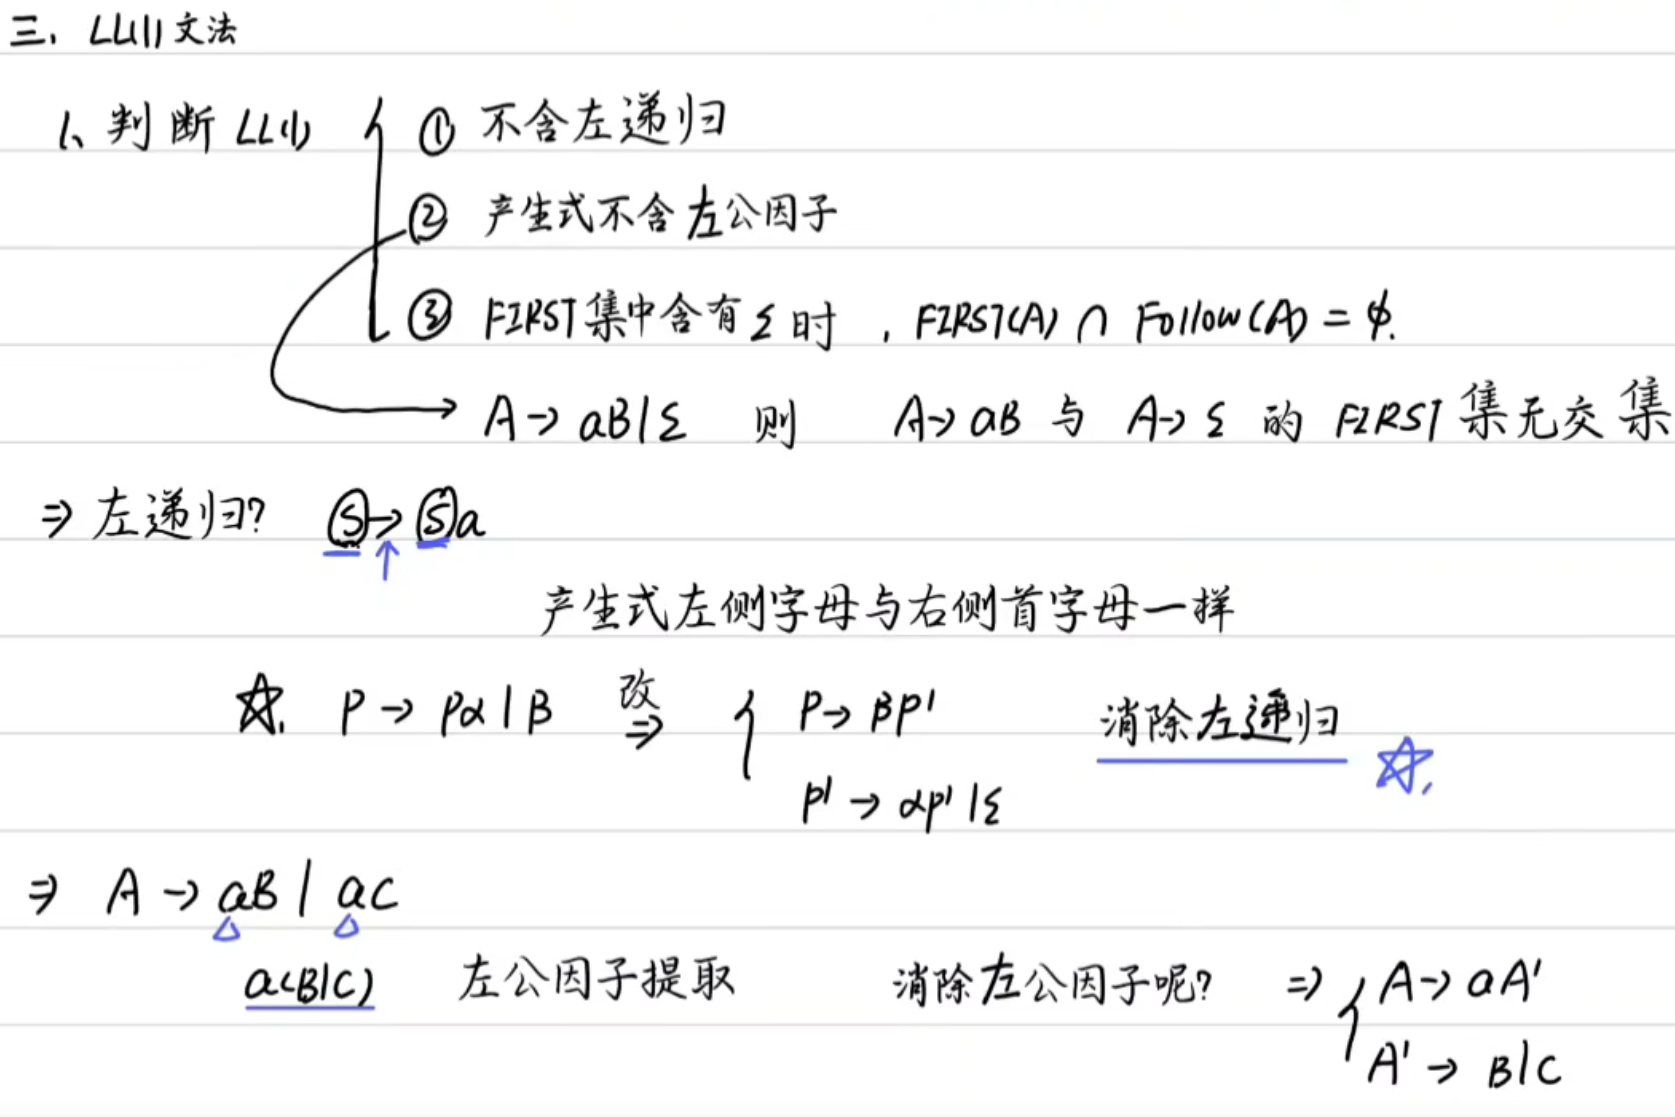 三、LL(1)文法
1、判断LL(1) { ① 不含左递归
② 产生式不含左公因子
③ FIRST集中含有ε时，FIRST(A) ∩ Follow(A) = ϕ.
A → aB|ε 则 A → aB 与 A → ε 的 FIRST集无交集
⇒ 左递归? S → Sa
产生式左侧字母与右侧首字母一样
☆. P → Pα|β 改⇒ { P → βP' 消除左递归 ☆.
P' → αP'|ε
⇒ A → aB | aC
a(B|C) 左公因子提取 消除左公因子呢? ⇒ { A → aA'
A' → B|C